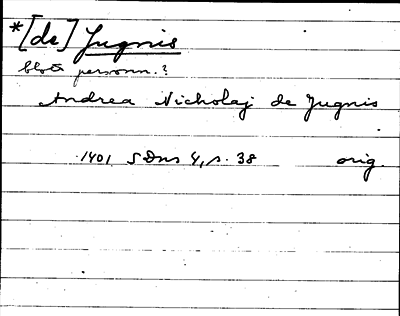 *[de] Jugnis
blott personn.?
Andrea Nicholaj de Jugnis
1401 SDns 4, s. 38 orig.